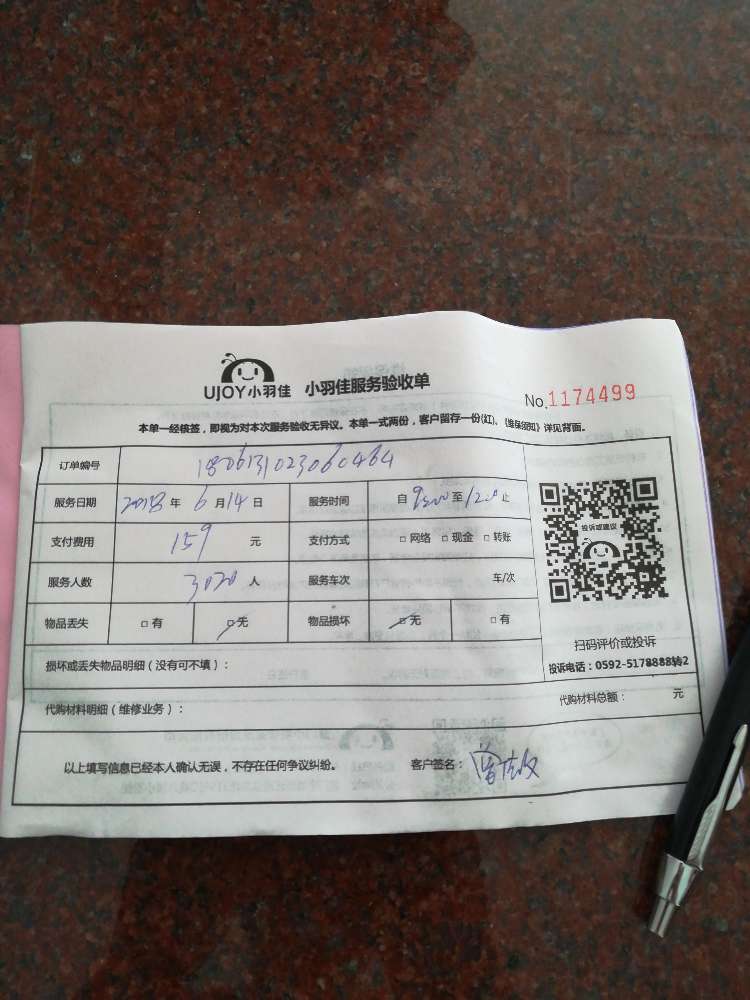 UJOY小羽佳 小羽佳服务验收单
No.1174499
本单一经核签，即视为对本次服务验收无异议。本单一式两份，客户留存一份(红)、《维保须知》详见背面。
订单编号 1806131023060464
服务日期 2018年6月14日 服务时间 自9:00至12:00止
支付费用 159元 支付方式 □网络 □现金 □转账
服务人数 3020人 服务车次 车/次
物品丢失 □有 □无 物品损坏 □无 □有
投诉或建议
扫码评价或投诉
投诉电话：0592-5178888转2
损坏或丢失物品明细（没有可不填）：
代购材料明细（维修业务）： 代购材料总额： 元
以上填写信息已经本人确认无误，不存在任何争议纠纷。 客户签名：